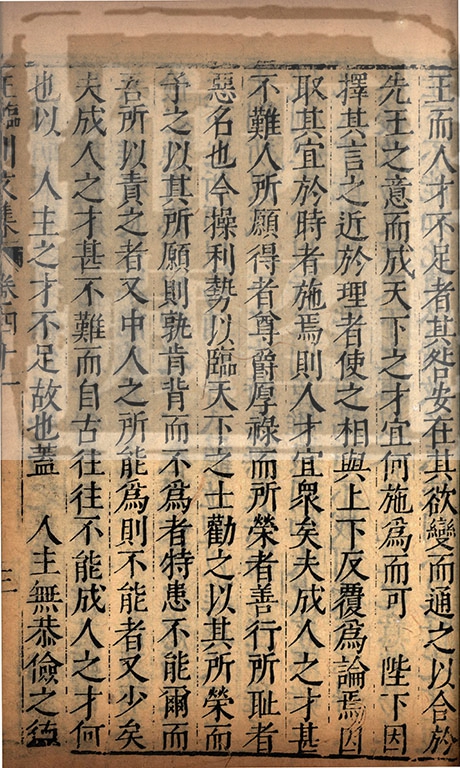 王而人才不足者其咎安在其欲變而通之以合於
先王之意而成天下之才宜何施為而可　陛下因
擇其言之近於理者使之相與上下反覆為論焉因
取其宜於時者施焉則人才宜衆矣夫成人之才甚
不難人所願得者尊爵厚祿而所榮者善行所恥者
惡名也今操利勢以臨天下之士勸之以其所榮而
予之以其所願則孰肯背而不為者特患不能爾而
吾所以責之者又中人之所能為則不能者又少矣
夫成人之才甚不難而自古往往不能成人之才何
也以　人主之才不足故也蓋　人主無恭儉之德
王臨川文集　卷四十一　三